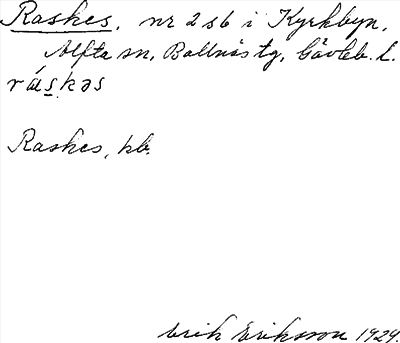 Raskes, nr 2 sb i Kyrkbyn,
Alfta sn, Bollnäs tg, Gävleb. l.
ráskəs
Raskes, kb.
Erik Eriksson 1929.